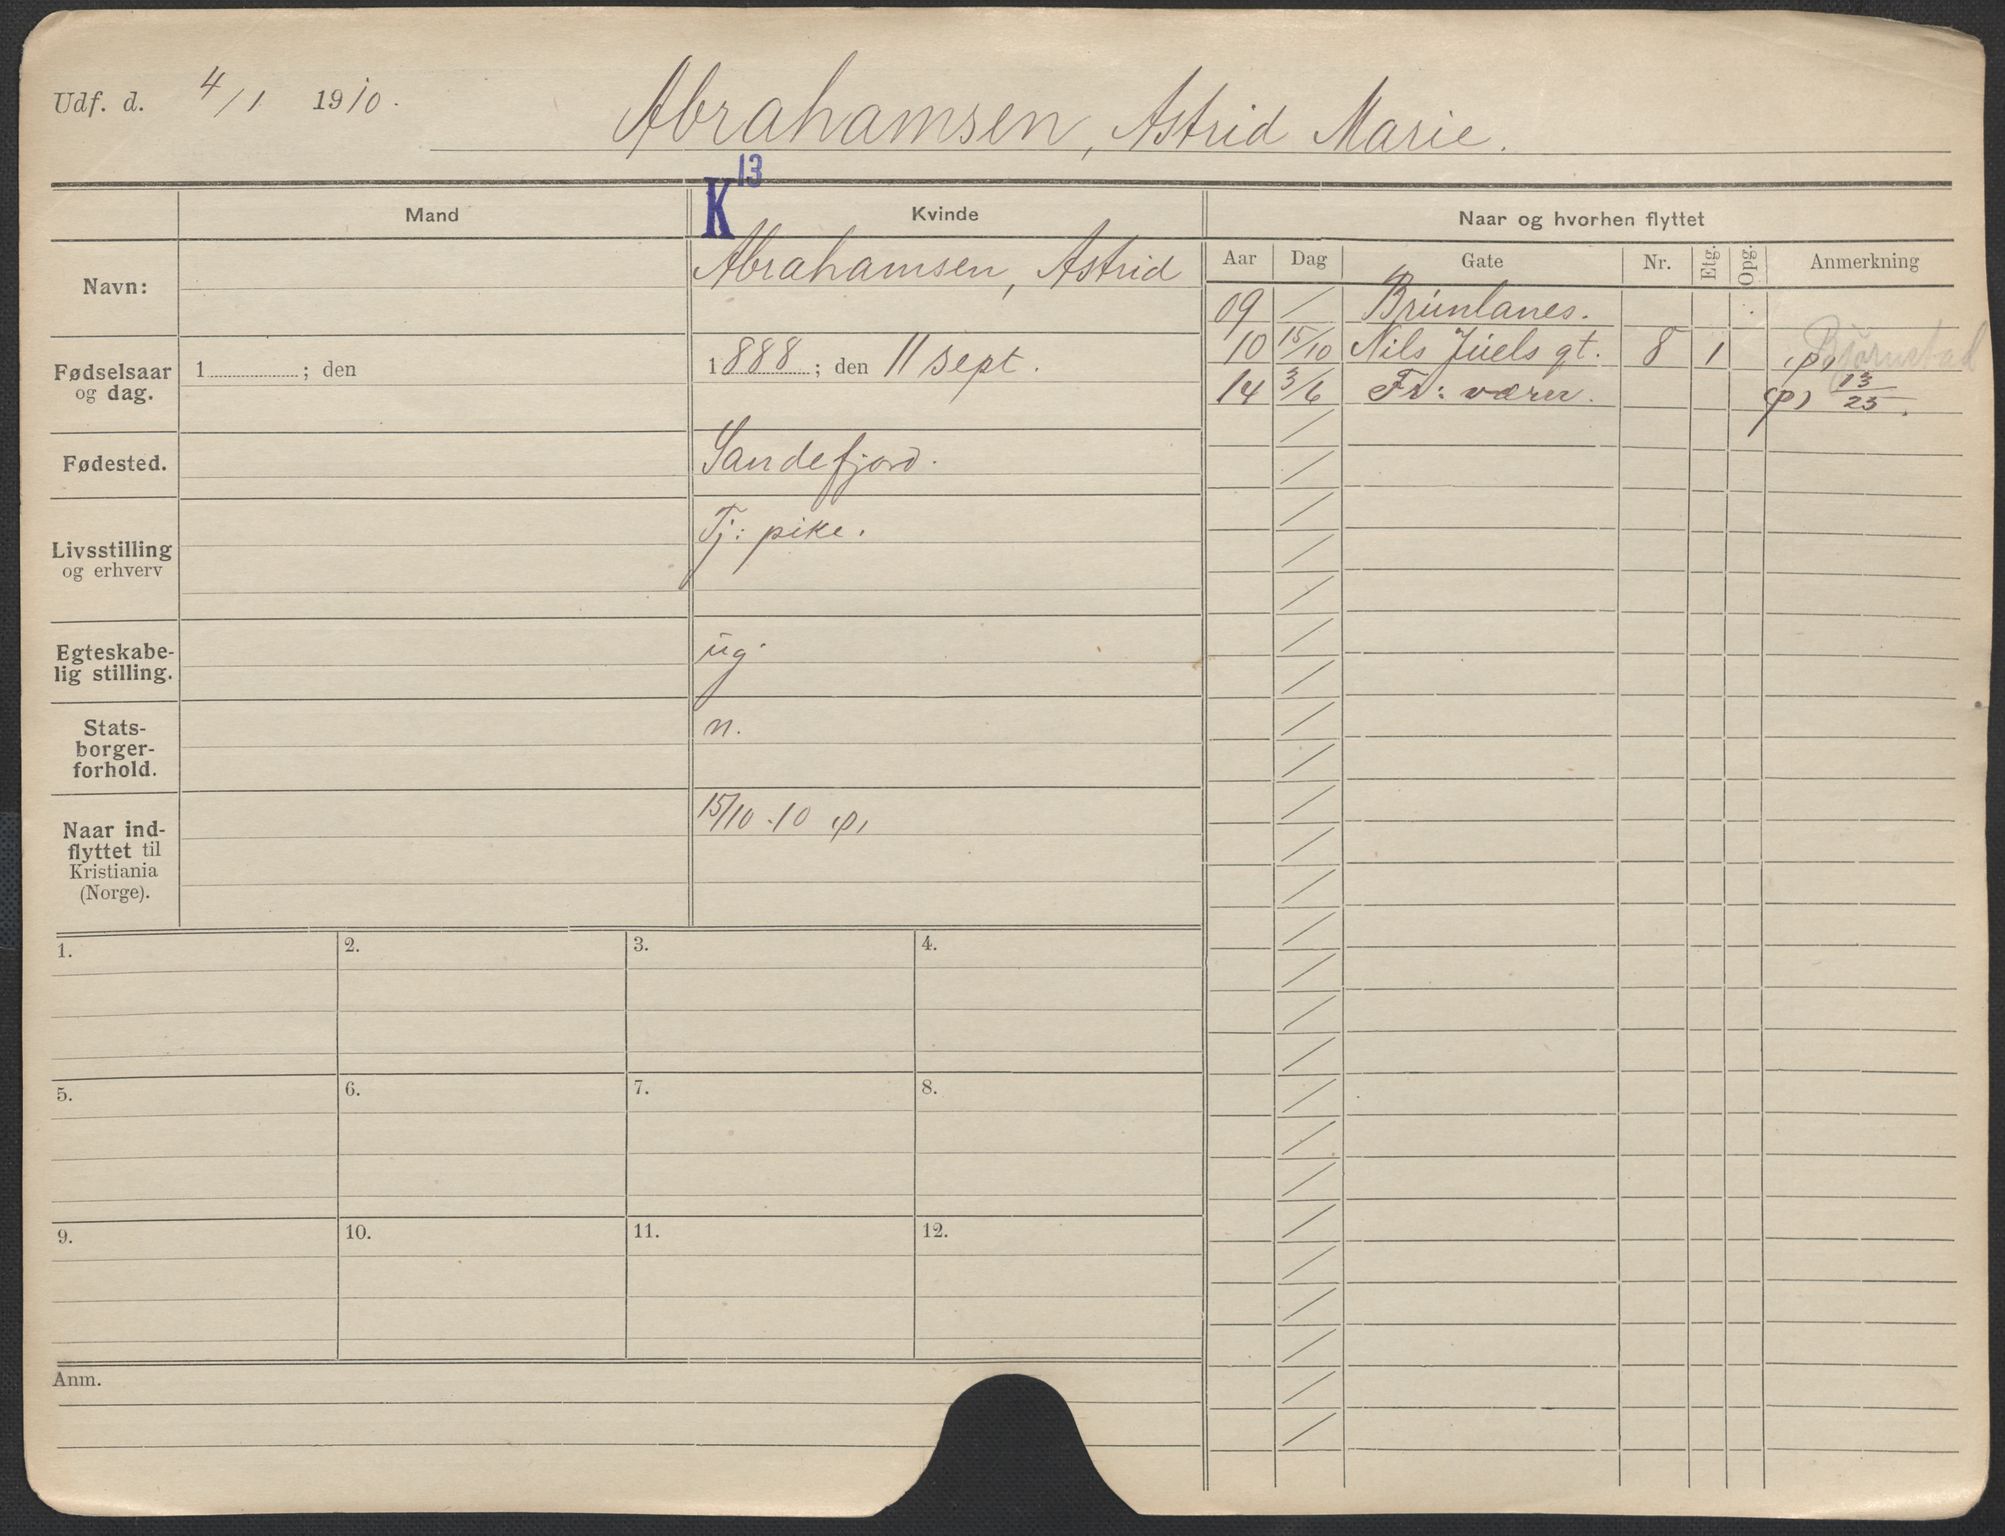 Udf. d. 4/1 1910.
Abrahamsen, Astrid Marie.
K 13
Mand
Kvinde
Naar og hvorhen flyttet
Navn:
Abrahamsen, Astrid
Fødselsaar og dag.
1 ; den
1888 ; den 11 sept.
Fødested.
Sandefjord.
Livsstilling og erhverv
Tj: pike.
Egteskabe-
lig stilling.
ug
Stats-
borger-
forhold.
n.
Naar ind-
flyttet til
Kristiania
(Norge).
15/10 . 10 (p)
Aar Dag Gate Nr. Etg. Opg. Anmerkning
09 / Brunlanes.
10 15/10 Nils Juels gt. 8 1 (p) Bjørnstad
14 3/6 Fr: værer. (p) 13/23.
1.
2.
3.
4.
5.
6.
7.
8.
9.
10.
11.
12.
Anm.